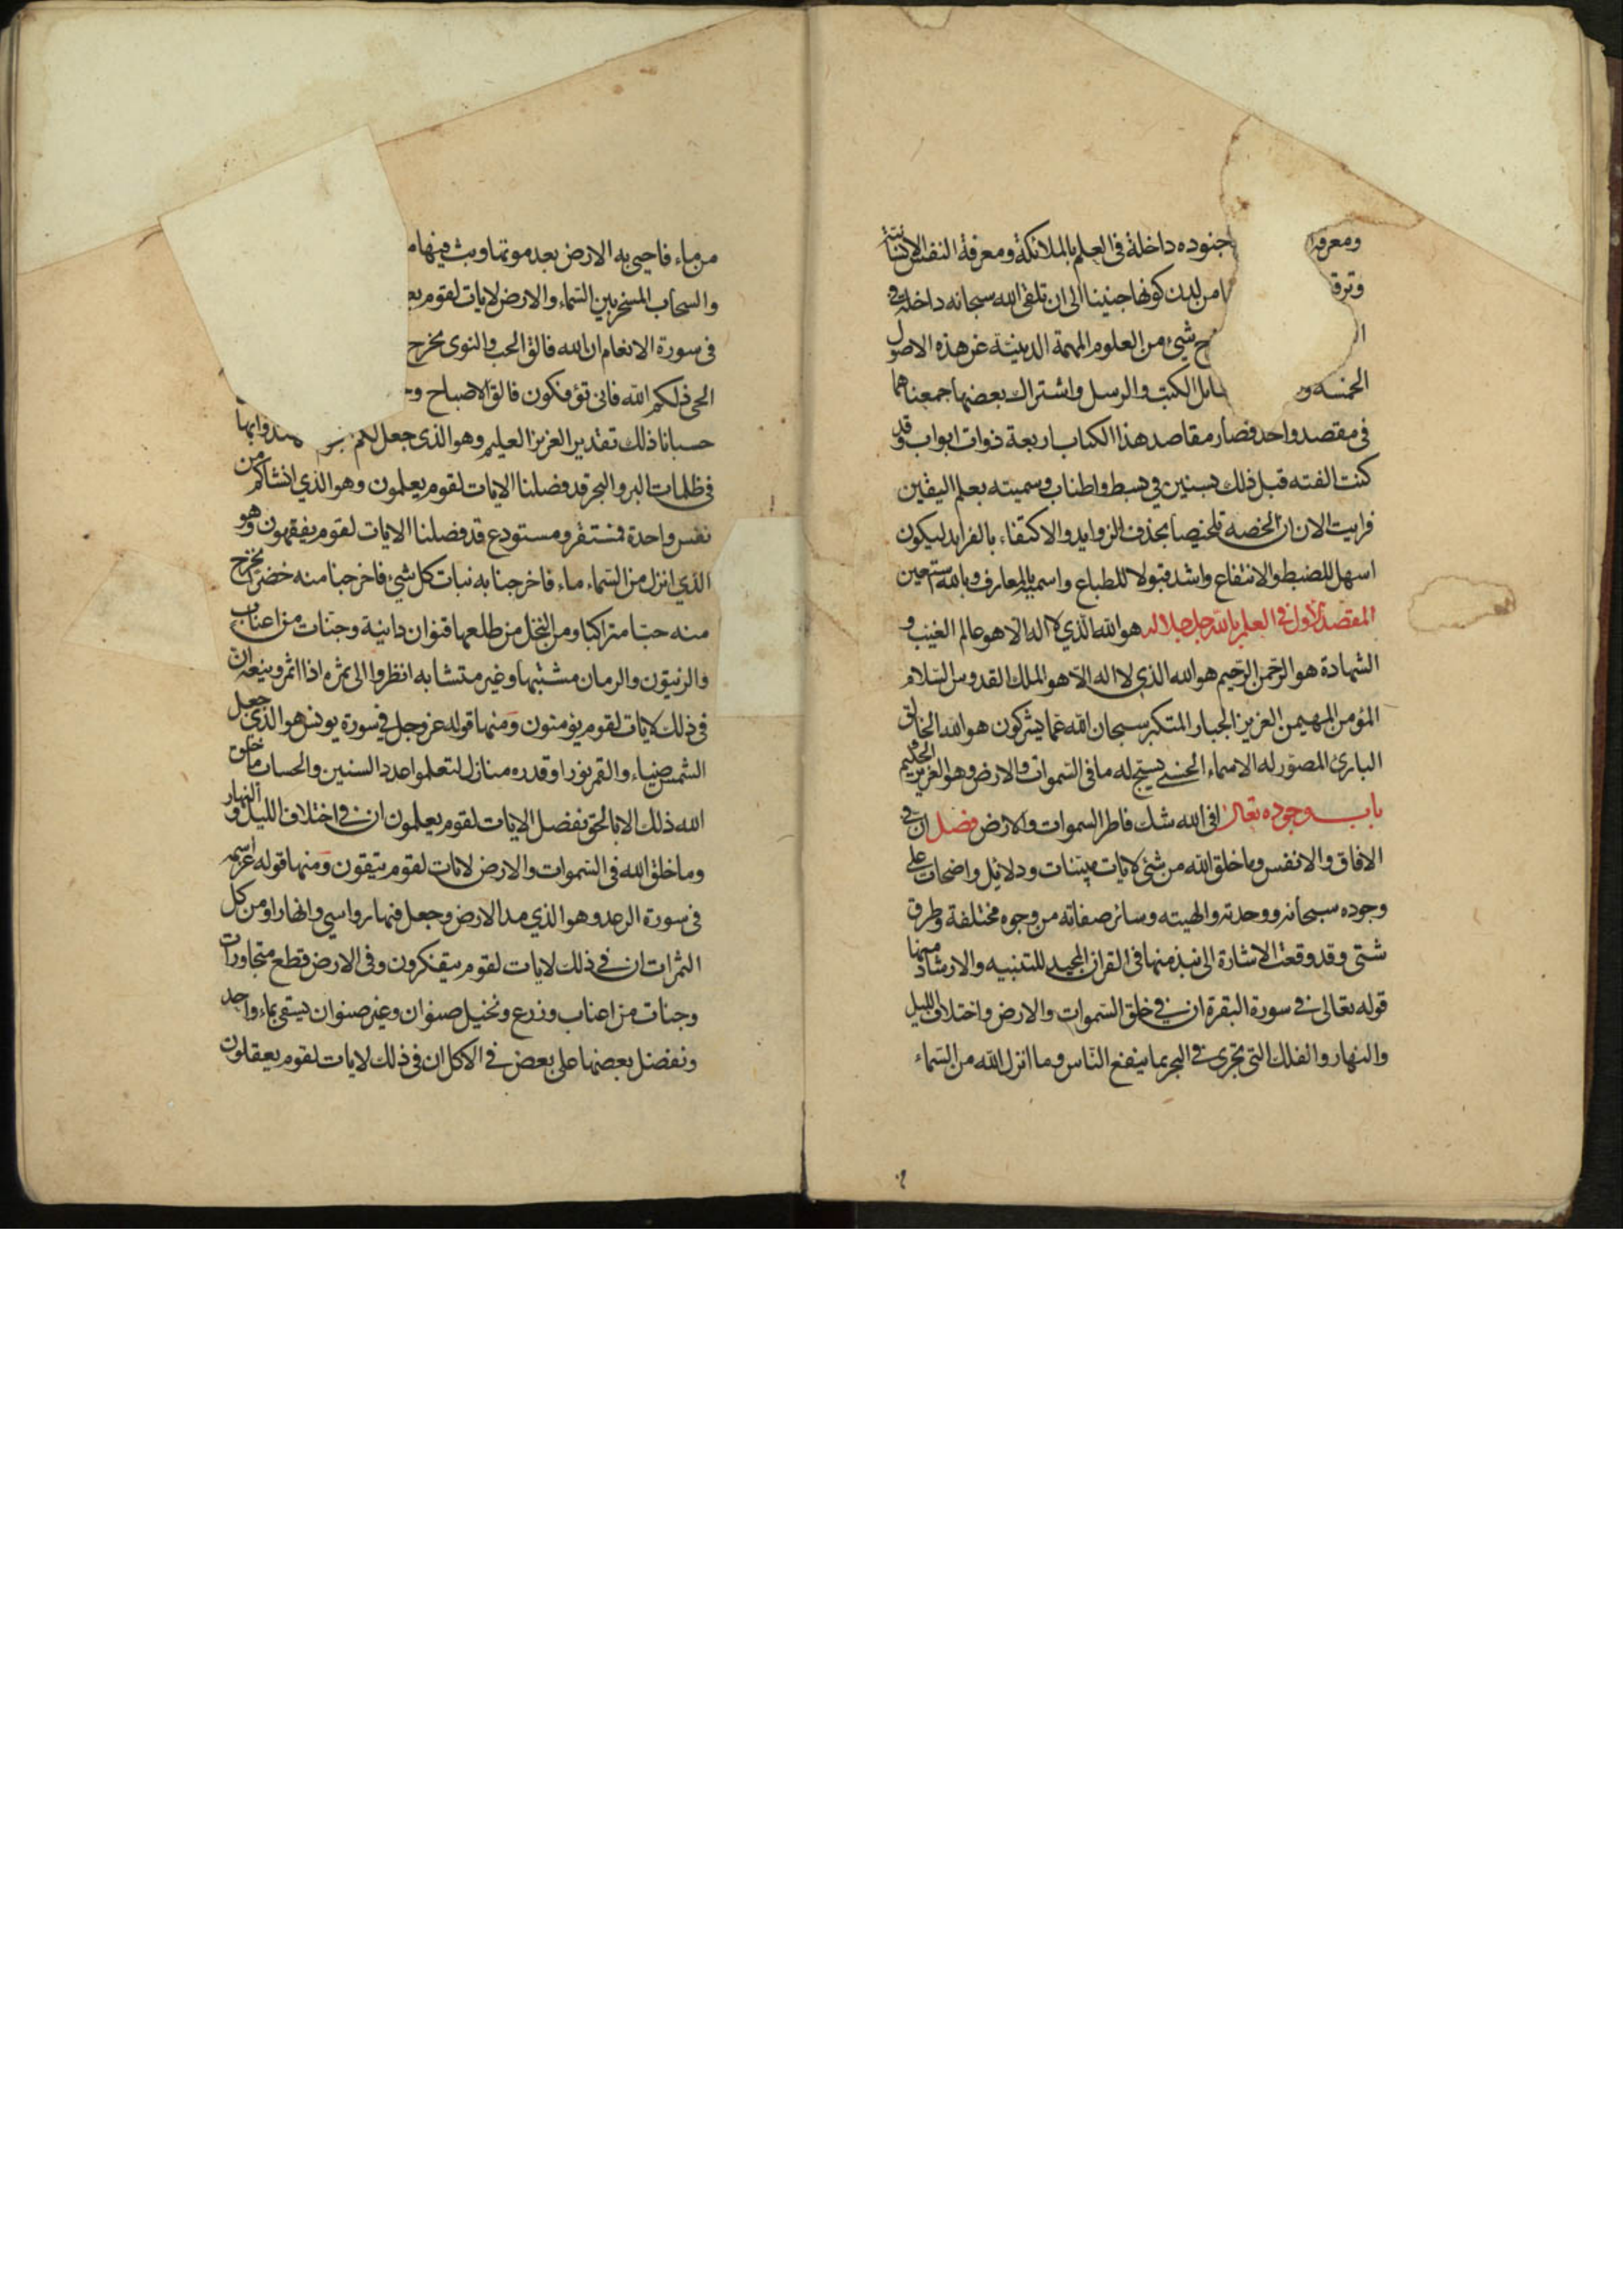 ومعرفة جنوده داخلة في العلم بالملائكة ومعرفة النفس الانسانية
وترقا من لدن كونها جنينا الى ان تلقى الله سبحانه داخلة في
ج شيء من العلوم المهمة الدينية عن هذه الاصول
الخمسة و الكتب والرسل واشتراك بعضها جمعناهما
في مقصد واحد فصار مقاصد هذا الكتاب اربعة ذوات ابواب وقد
كنت الفته قبل ذلك بسنين في بسط واطناب وسميته بعلم اليقين
فرايت الان ان الخصه تلخيصا بحذف الزوايد والاكتفاء بالفرايد ليكون
اسهل للضبط والانتفاع واشد قبولا للطباع واسميه بالمعارف وبالله نستعين
المقصد الاول في العلم بالله جل جلاله هو الله الذي لا اله الا هو عالم الغيب و
الشهادة هو الرحمن الرحيم هو الله الذي لا اله الا هو الملك القدوس السلام
المؤمن المهيمن العزيز الجبار المتكبر سبحان الله عما يشركون هو الله الخالق
البارئ المصور له الاسماء الحسنى يسبح له ما في السموات والارض وهو العزيز الحكيم
باب وجوده تعالى افي الله شك فاطر السموات والارض فصل ان في
الافاق والانفس وما خلق الله من شئ لايات بينات ودلائل واضحات على
وجوده سبحانه ووحدته والهيته وسائر صفاته من وجوه مختلفة وطرق
شتى وقد وقعت الاشارة الى نبذ منها في القران المجيد للتنبيه والارشاد منها
قوله تعالى في سورة البقرة ان في خلق السموات والارض واختلاف الليل
والنهار والفلك التي تجري في البحر بما ينفع الناس وما انزل الله من السماء
من ماء فاحيى به الارض بعد موتها وبث فيها م
والسحاب المسخر بين السماء والارض لايات لقوم يع
في سورة الانعام ان الله فالق الحب والنوى يخرج
الحى ذلكم الله فانى تؤفكون فالق الاصباح وج
حسبانا ذلك تقدير العزيز العليم وهو الذي جعل لكم بها
في ظلمات البر والبحر قد فصلنا الايات لقوم يعلمون وهو الذي انشاكم من
نفس واحدة فمستقر ومستودع قد فصلنا الايات لقوم يفقهون وهو
الذي انزل من السماء ماء فاخرجنا به نبات كل شيء فاخرجنا منه خضرا نخرج
منه حبا متراكبا ومن النخل من طلعها قنوان دانية وجنات من اعناب
والزيتون والرمان مشتبها وغير متشابه انظروا الى ثمره اذا اثمر وينعه ان
في ذلك لايات لقوم يؤمنون ومنها قوله عز وجل في سورة يونس هو الذي جعل
الشمس ضياء والقمر نورا وقدره منازل لتعلموا عدد السنين والحساب ما خلق
الله ذلك الا بالحق نفصل الايات لقوم يعلمون ان في اختلاف الليل والنهار
وما خلق الله في السموات والارض لايات لقوم يتقون ومنها قوله عز اسمه
في سورة الرعد وهو الذي مد الارض وجعل فيها رواسي وانهارا ومن كل
الثمرات ان في ذلك لايات لقوم يتفكرون وفي الارض قطع متجاورات
وجنات من اعناب وزرع ونخيل صنوان وغير صنوان يسقى بماء واحد
ونفضل بعضها على بعض في الاكل ان في ذلك لايات لقوم يعقلون